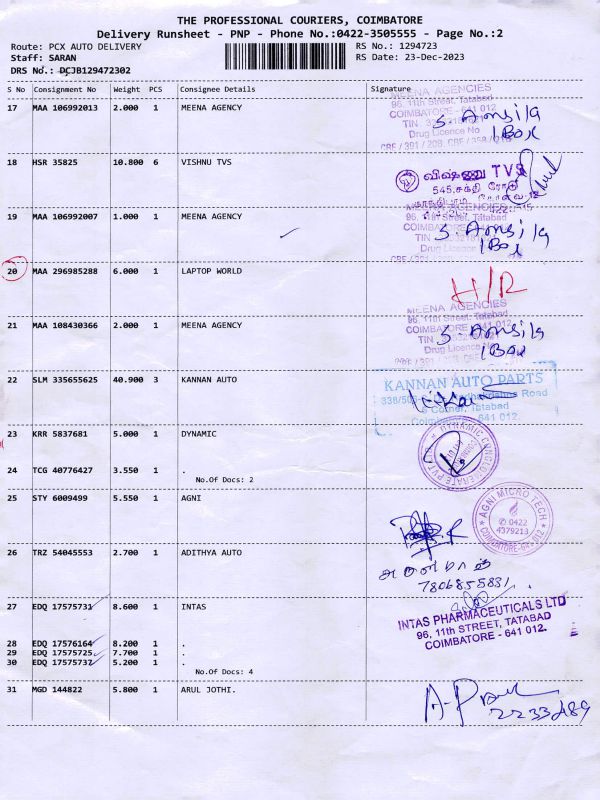 THE PROFESSIONAL COURIERS, COIMBATORE
Delivery Runsheet - PNP - Phone No.:0422-3505555 - Page No.:2
Route: PCX AUTO DELIVERY RS No.: 1294723
Staff: SARAN RS Date: 23-Dec-2023
DRS No.: DCJB129472302
S No Consignment No Weight PCS Consignee Details Signature
17 MAA 106992013 2.000 1 MEENA AGENCY
MEENA AGENCIES
96, 11th Street, Tatabad
COIMBATORE - 641 012
Drug Licence No
1 Box
18 HSR 35825 10.800 6 VISHNU TVS
விஷ்ணு TVS
545, சக்தி ரோடு
19 MAA 106992007 1.000 1 MEENA AGENCY
MEENA AGENCIES
96, 11th Street, Tatabad
1 Box
20 MAA 296985288 6.000 1 LAPTOP WORLD
H/R
21 MAA 108430366 2.000 1 MEENA AGENCY
MEENA AGENCIES
96, 11th Street, Tatabad
COIMBATORE - 641 012
Drug Licence No
1 Box
22 SLM 335655625 40.900 3 KANNAN AUTO
KANNAN AUTO PARTS
Tatabad
Coimbatore - 641 012
23 KRR 5837681 5.000 1 DYNAMIC
24 TCG 40776427 3.550 1 .
No.Of Docs: 2
25 STY 6009499 5.550 1 AGNI
AGNI MICRO TECH
0422
4379213
COIMBATORE-641 012
26 TRZ 54045553 2.700 1 ADITHYA AUTO
7806855831
27 EDQ 17575731 8.600 1 INTAS
INTAS PHARMACEUTICALS LTD
96, 11th STREET, TATABAD
COIMBATORE - 641 012.
28 EDQ 17576164 8.200 1 .
29 EDQ 17575725 7.700 1 .
30 EDQ 17575732 5.200 1 .
No.Of Docs: 4
31 MGD 144822 5.800 1 ARUL JOTHI.